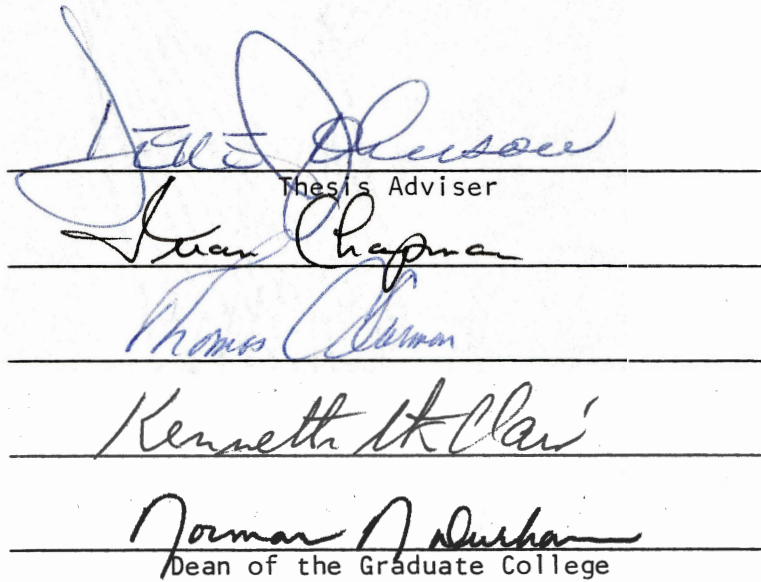 Deke Johnson
Thesis Adviser
Ivan Chapman
Thomas Karman
Kenneth St Clair
Norman N Durham
Dean of the Graduate College